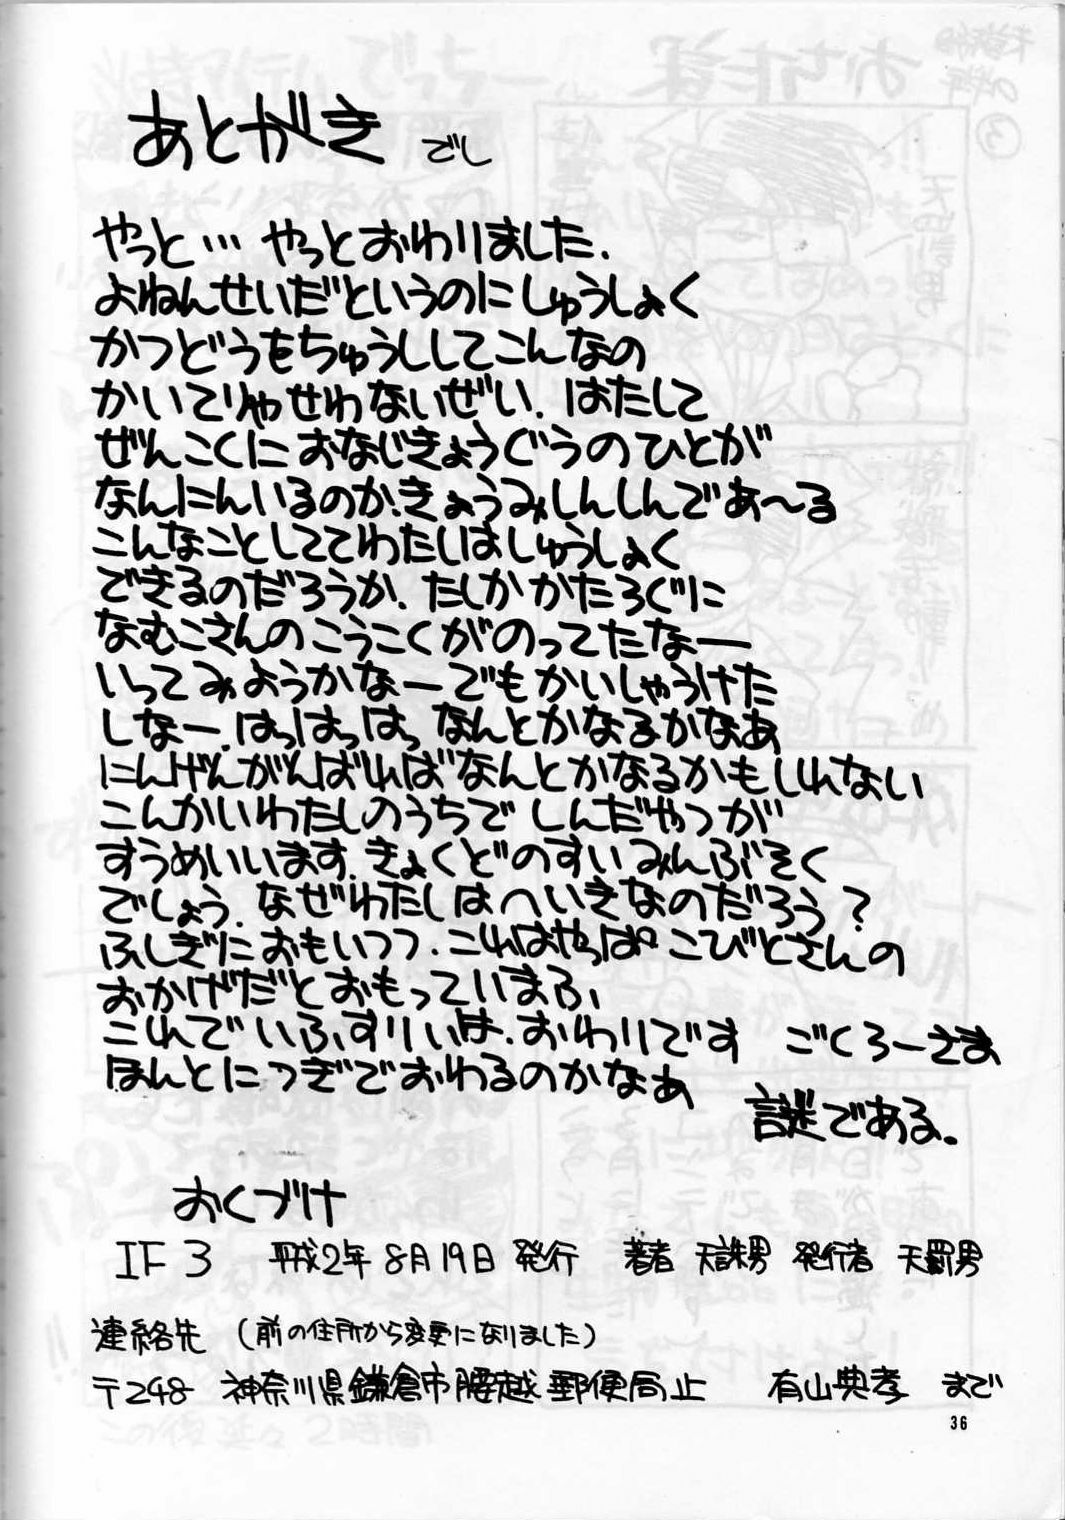 あとがき でし
やっと… やっとおわりました.
よねんせいだというのにしゅうしょく
かつどうをちゅうししてこんなの
かいてりゃせわないぜい. はたして
ぜんこくにおなじきょうぐうのひとが
なんにんいるのか.きょうみしんしんであ〜る
こんなことしててわたしはしゅうしょく
できるのだろうか. たしかかたろぐに
なむこさんのこうこくがのってたなー
いってみようかなーでもかいしゃうけた
しなー.はっはっはっなんとかなるかなあ
にんげんがんばればなんとかなるかもしれない
こんかいわたしのうちでしんだやつが
すうめいいます.きょくどのすいみんぶそく
でしょう.なぜわたしはへいきなのだろう?
ふしぎにおもいつつ.これはやっぱこびとさんの
おかげだとおもっていまふ、
これでいふすりぃは.おわりです ごくろーさま
ほんとにつぎでおわるのかなぁ
謎である.
おくづけ
IF3 平成2年8月19日 発行 著者 天誅男 発行者 天罰男
連絡先 (前の住所から変更になりました)
〒248 神奈川県鎌倉市腰越郵便局止 有山典孝 まで
36